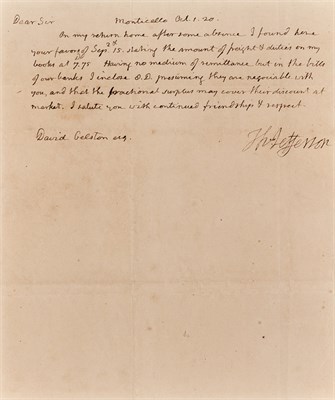 Dear Sir Monticello Oct. 1. 20.
On my return home after some absence I found here
your favor of Sep. 15. stating the amount of freight & duties on my
books at 7.75 Having no medium of remittance but in the bills
of our banks I inclose 8.D. presuming they are negociable with
you, and that the fractional surplus may cover their discount at
market. I salute you with continued friendship & respect.
David Gelston esq. Th Jefferson